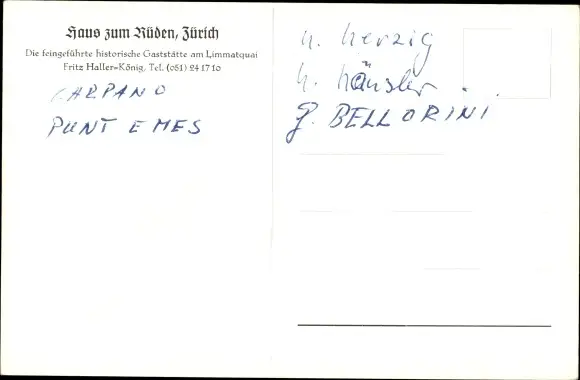 Haus zum Rüden, Zürich
Die feingeführte historische Gaststätte am Limmatquai
Fritz Haller-König, Tel. (051) 24 17 10
CARPANO
PUNT E MES
h. herzig
h. häusler
G. BELLORINI